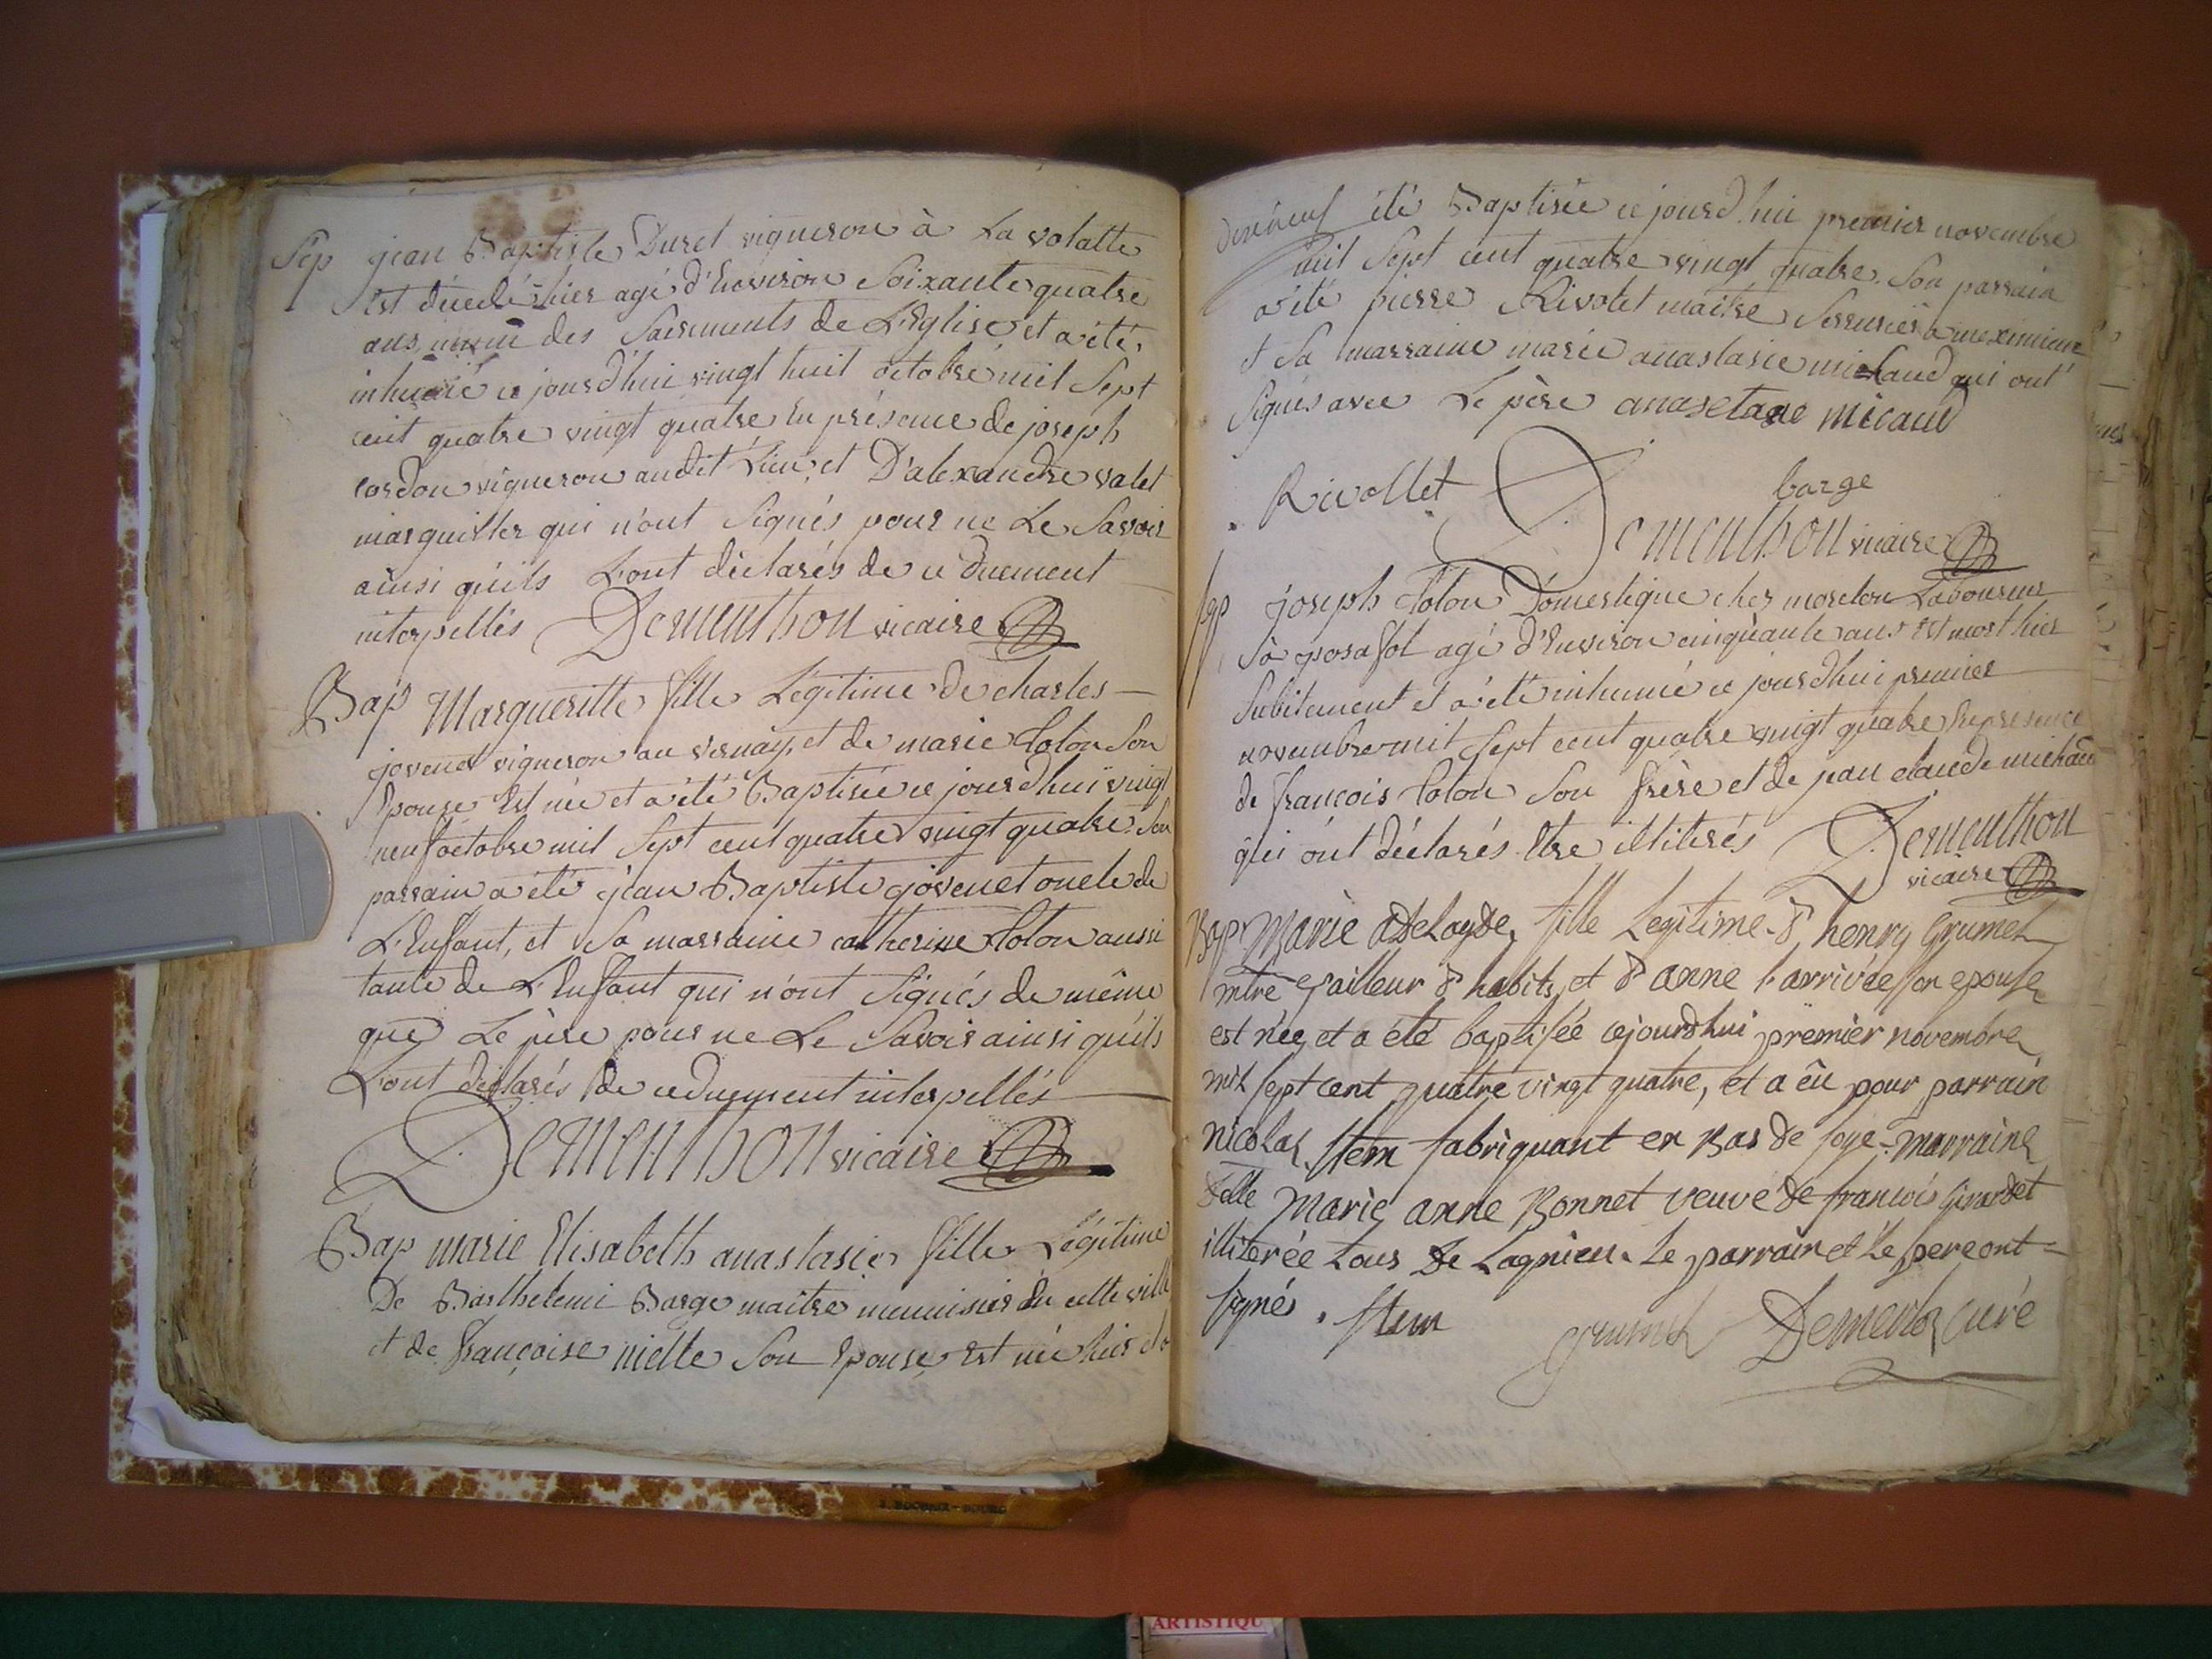 Sep jean Baptiste Duret vigneron à La volatte
Est décedé hier agé d'Environ Soixante quatre
ans, muni des Sacrements de L'Eglise, et a été
inhumé ce jourd'hui vingt huit octobre mil Sept
cent quatre vingt quatre En présence de joseph
cordon vigneron audit Lieu, et D'alexandre valet
marguiller qui n'ont Signés pour ne Le Savoir
ainsi qu'ils L'ont déclarés de ce duement
interpellés Dementhon vicaire
Bap Margueritte fille Légitime de charles
jovenet vigneron au vernay, et de marie Colon Son
Epouse Est née et a été Baptisée ce jourd'hui vingt
neuf octobre mil Sept cent quatre vingt quatre. Son
parrain a été jean Baptiste jovenet oncle de
L'Enfant, et Sa marraine catherine Colon aussi
tante de L'Enfant qui n'ont Signés de même
que Le père pour ne Le Savoir ainsi qu'ils
L'ont déclarés de ce duement interpellés
Dementhon vicaire
Bap marie Elisabeth anastasie fille Légitime
De Barthelemi Barge maitre menuisier En cette ville
et de françoise miette Son Epouse, Est née hier et a
été Baptisée ce jourd'hui premier novembre
mil Sept cent quatre vingt quatre. Son parrain
a été pierre Rivolet maitre Serrurier a meximieux
et Sa marraine marie anastasie michaud qui ont
Signés avec Le père anasetase micaud
Rivollet barge
Dementhon vicaire
Sep joseph Colon Domestique chez moreton Laboureur
à posafol agé d'Environ cinquante ans Est mort hier
Subitement et a été inhumé ce jourd'hui premier
novembre mil Sept cent quatre vingt quatre En presence
de françois Colon Son frère et de jean claude michaud
qui ont déclarés Etre illitérés Dementhon
vicaire
Bap Marie adelayde, fille Legitime d' henry Grumet
mtre Tailleur d' habits, et d' anne l'arrivée son epouse
est née, et a été baptisée cejourdhui premier novembre
mil sept cent quatre vingt quatre, et a êu pour parrain
nicolas Stem fabriquant en Bas de soye. marraine
delle Marie anne Bonnet veuve de francois Girardet
illiterée tous de Lagnieu. Le parrain et le pere ont
signés. Stem grumet Dementhon curé
ARTISTIQU